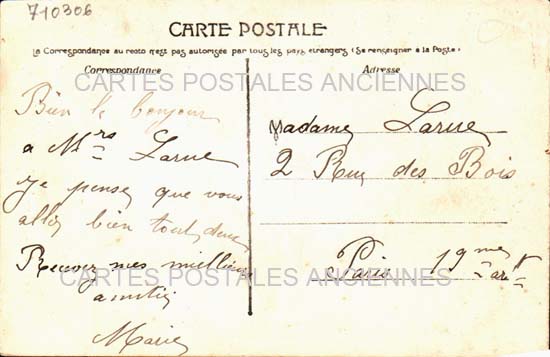 710306
CARTE POSTALE
La Correspondance au recto n'est pas autorisée par tous les pays étrangers (Se renseigner à la Poste)
Correspondance
Adresse
CARTES POSTALES ANCIENNES
Bien le bonjour
a Mrs Larue
je pense que vous
allez bien tout deux
Recevez mes meilleurs
amitiés
Marie
Madame Larue
2 Rue des Bois
Paris 19me art
CARTES POSTALES ANCIENNES
CARTES POSTALES ANCIENNES